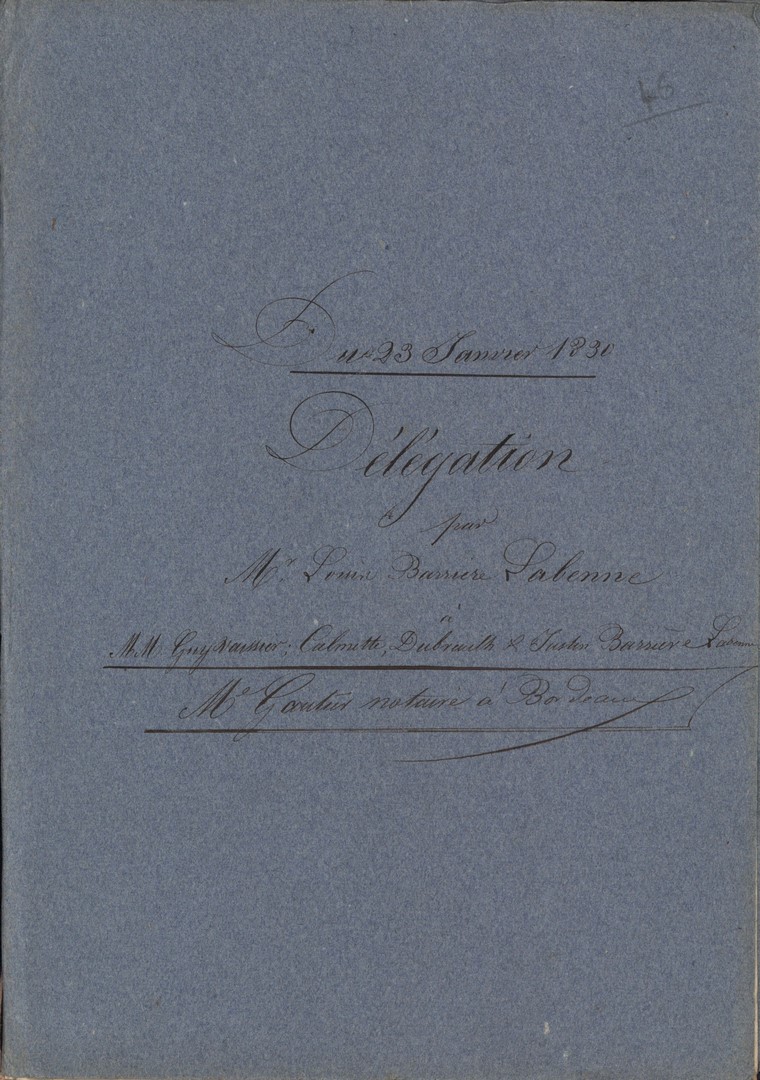 46
Du 23 Janvier 1830
Délégation
par
Mr Louis Barrière Labenne
à
MM Guy Calmette, Dubrauilh & Justin Barrière Labenne
Me Gautier notaire à Bordeaux